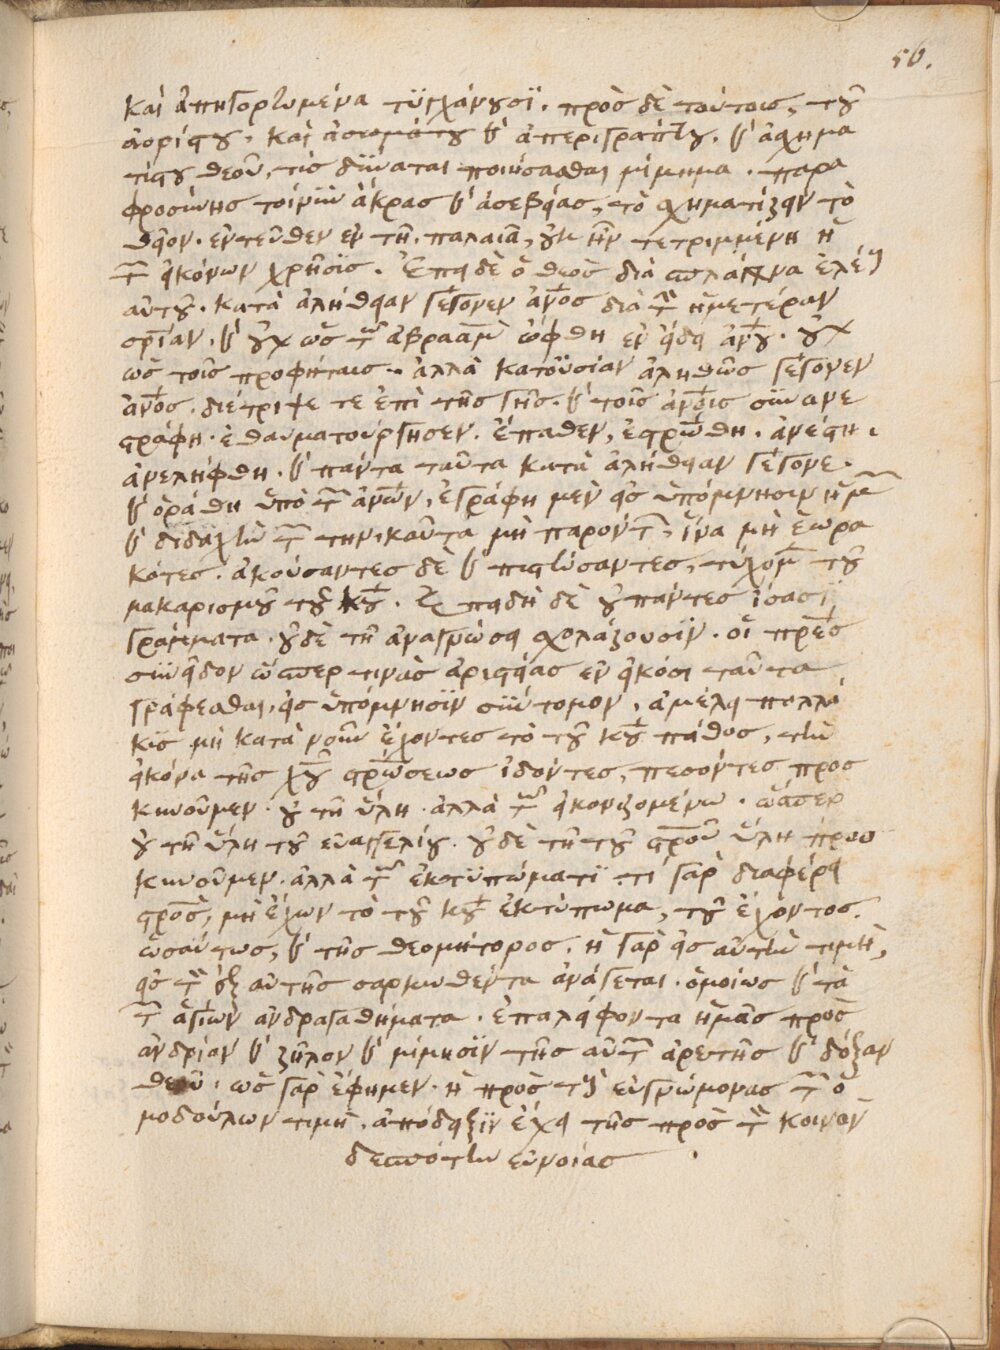 56.
καὶ ἀπηγορευμένα τϋγχάνουσϊ. πρὸς δὲ τούτοις, τοῦ
ἀορίστου, καὶ ἀσωμάτου κ̀ ἀπεριγράπτου. κ̀ ἀσχημα
τίστου θεοῦ, τίς δΰναται ποιήσασθαι μίμημα. παρα
φροσύνης τοίνϋν ἄκρας κ̀ ἀσεβείας, τὸ σχηματίζειν τὸ
θεῖον. ἐντεῦθεν ἐν τῆ παλαιᾶ, οὐκ ἦν τετριμμένη ἡ
τῶν εἰκόνων χρῆσϊς. Ἐπεὶ δὲ ὁ θεὸς διὰ σπλάγχνα ἐλέους
αὐτοῦ. κατὰ ἀλήθειαν γέγονεν ἄνος διὰ τὴν ἡμετέραν
σρίαν. κ̀ οὐχ ὡς τῶ ἀβραὰμ ὤφθη ἐν εἴδει ἀνου. οὐχ
ὡς τοῖς προφήταις. ἀλλὰ κατοὐσίαν ἀληθῶς γέγονεν
ἄνος. διέτριψε τε ἐπὶ τῆς γῆς. κ̀ τοῖς ἀνοις σϋνανε
στράφη. ἐθαυματούργησεν. ἔπαθεν, ἐστρώθη. ἀνέστη.
ἀνελήφθη. κ̀ πάντα ταῦτα κατὰ ἀλήθειαν γέγονε.
κ̀ ὁράθη ὑπὸ τῶν ἀνων, ἐγράφη μὲν εἰς ὑπόμνησιν ἡμῶν
κ̀ διδαχὴν τῶν τηνικαῦτα μὴ παρόντων, ἵνα μὴ ἑωρα
κότες. ἀκούσαντες δὲ κ̀ πιστεύσαντες, τύχομεν τοῦ
μακαρισμοῦ τοῦ κυ. Ἐπειδὴ δὲ οὐ πάντες ἴσασϊ
γράμματα. οὐδὲ τῆ ἀναγνώσει σχολάζουσϊν. οἱ πρες
σϋνεῖδον ὥσπερ τινὰς ἀριστείας ἐν εἰκόσι ταῦτα
γράφεσθαι, εἰς ὑπόμνησϊν σϋντομον. ἀμέλει πολλά
κϊς μὴ κατὰ νοῦν ἔχοντες τὸ τοῦ κυ πάθος, τὴν
εἰκόνα τῆς χυ στρώσεως ἰδόντες, πεσόντες προς
κυνοῦμεν. οὐ τῆ ὕλη. ἀλλὰ τῶ εἰκονιζομένω. ὥσπερ
οὐ τῆ ὕλη τοῦ εὐαγγελίου. οὐδὲ τῆ τοῦ στροῦ ὕλη προσ
κυνοῦμεν. ἀλλὰ τῶ ἐκτϋπώματϊ τί γὰρ διαφέρει
στρὸς, μὴ ἔχων τὸ τοῦ κυ ἐκτύπωμα, τοῦ ἔχοντος.
ὡσαύτως, κ̀ τῆς θεομήτορος. ἡ γὰρ εἰς αὐτὴν τιμὴ,
εἰς τὸν ἐξ αὐτῆς σαρκωθέντα ἀνάγεται. ὁμοίως κ̀ τὰ
τῶν ἁγίων ἀνδραγαθήματα. ἐπαλείφοντα ἡμᾶς πρὸς
ἀνδρίαν κ̀ ζῆλον κ̀ μίμησϊν τῆς αὐτῶν ἀρετῆς κ̀ δόξαν
θεοῦ. ὡς γὰρ ἔφημεν. ἡ πρὸς τοὺς εὐγνώμονας τῶν ὁ
μοδούλων τιμὴ, ἀπόδειξϊν ἔχει τῆς πρὸς τὸν κοινὸν
δεσπότην εὐνοίας